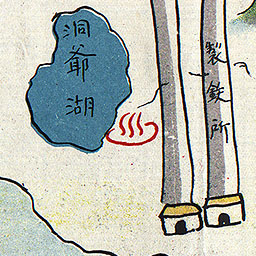 洞爺湖
製鉄所